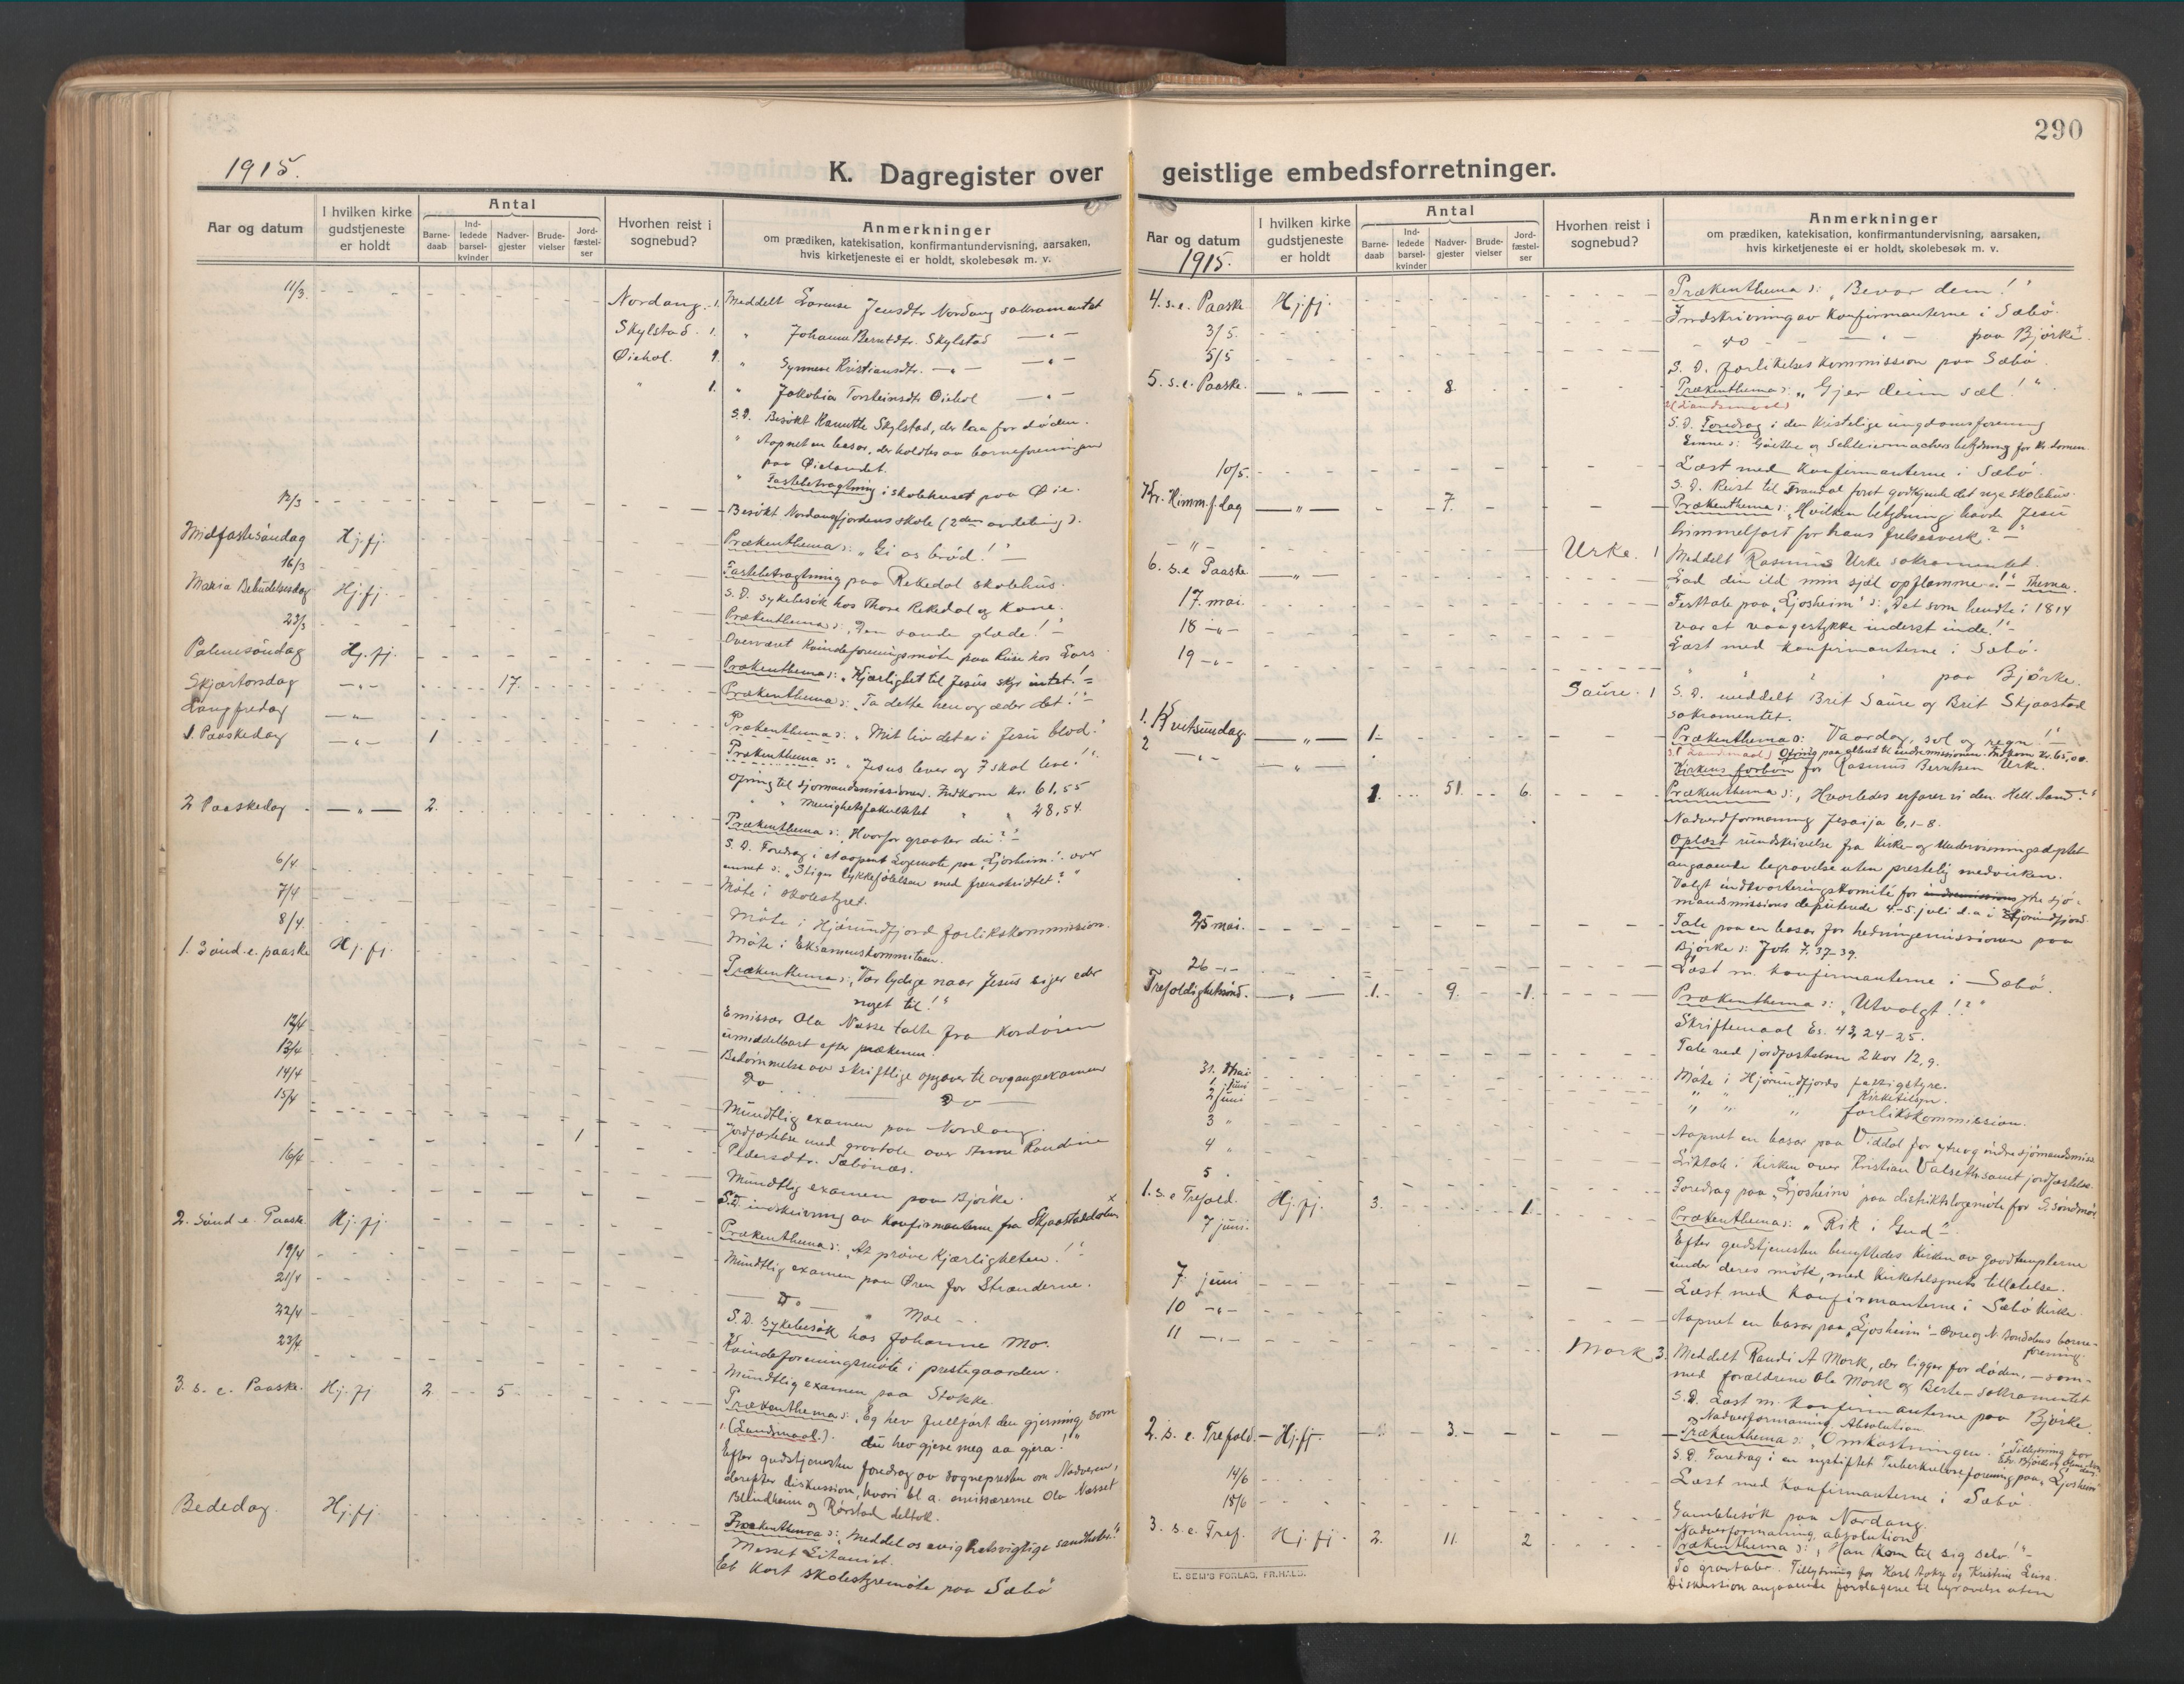 290
1915.
K. Dagregister over geistlige embedsforretninger.
Aar og datum
I hvilken kirke gudstjeneste er holdt
Antal
Barne-daab
Ind-ledede barsel-kvinder
Nadver-gjester
Brude-vielser
Jord-fæstel-ser
Hvorhen reist i sognebud?
Anmerkninger
om prædiken, katekisation, konfirmantundervisning, aarsaken,
hvis kirketjeneste ei er holdt, skolebesøk m. v.
11/3. Nordang. 1. Meddelt Lorense Jensdtr Nordang sakramentet
Skylstad. 1. " Johanna Berntdtr. Skylstad — " —
Øiehol. 1. " Synneve Kristiansdtr. — " — — " —
" 1. " Jakobia Torsteinsdtr Øiehol — " —
S.D. Besøkt Skylstad, der laa for døden.
" Aapnet en basar, der holdtes av barneforeningen
paa Øielandet.
" Fastebetragtning i skolehuset paa Øie.
12/3 Besøkt Nordangfjordens skole (2den avdeling).
Midfastesøndag Hj.fj. Prækenthema: "Gi os brød!"
16/3 Fastebetragtning paa Rekedal skolehus.
S.D. sykebesøk hos Thore Rekedal og kone.
Maria Budskapsdag Hj.fj. Prækenthema: "Den sande glæde!"
23/3 Overværet kvindeforeningsmøte paa Riise hos Lars
Palmesøndag Hj.fj. Prækenthema: "Kjærlighet til Jesus skyr intet!"
Skjærtorsdag — " — 17. Prækenthema: "Ta dette hen og æder det!"
Langfredag — " — Prækenthema: "Mit liv det er i Jesu blod."
1. Paaskedag — " — 1 Prækenthema: "Jesus lever og I skal leve!"
Ofring til sjømandsmissionen. Indkom kr. 61,55
" " Menighetsfakultetet " " 28,54.
2 Paaskedag — " — 2. Prækenthema: "Hvorfor graater du?"
S.D. Foredrag i et aapent Logemøte paa "Ljosheim" over
emnet: "Stiger lykkefølelsen med fremskridtet?"
6/4 Møte i skolestyret.
7/4 Møte i Hjørundfjord forlikskommission.
8/4 Møte i Eksamenskommiteen.
1. Sønd. e. paaske Hj.fj. Prækenthema: "Vær lydige naar Jesus siger eder
noget til!"
Emissær Ola Næsse talte fra kordøren
umiddelbart efter prækenen.
12/4 Bedømmelse av skriftlige opgaver til avgangsexamen
13/4 Do — Do —
14/4 Mundtlig examen paa Nordang.
15/4 1 Jordfæstelse med gravtale over Anne Randine
Pedersdtr. Sæbønæs.
16/4 Mundtlig examen paa Bjørke.
S.D. indskrivning av konfirmanterne fra Skjaastaddalen ×
2. Sønd e. Paaske Hj.fj. Prækenthema: "At prøve kjærligheten!"
19/4 Mundtlig examen paa Øren for Stranderne.
21/4 — Do — " Moe
S.D. sykebesøk hos Johanne Mo.
22/4 Kvindeforeningsmøte i prestegaarden.
23/4 Mundtlig examen paa Stokke.
3. s. e. Paaske. Hj.fj 2 5 Prækenthema: "Eg hev fullført den gjerning, som
(Landsmaal). du hev gjeve meg aa gjera!"
Efter gudstjenesten foredrag av sognepresten om Nadveren,
derefter diskussion, hvori bl a. emissærerne Ola Næsset
Blindheim og Rørstad deltok.
Bededag. Hj.fj. Prækenthema: "Meddel os evighetsvigtige sandheter!"
Messet Litaniet.
Et kort skolestyremøte paa Sæbø
Aar og datum
1915.
I hvilken kirke gudstjeneste er holdt
Antal
Barne-daab
Ind-ledede barsel-kvinder
Nadver-gjester
Brude-vielser
Jord-fæstel-ser
Hvorhen reist i sognebud?
Anmerkninger
om prædiken, katekisation, konfirmantundervisning, aarsaken,
hvis kirketjeneste ei er holdt, skolebesøk m. v.
4. s. e. Paaske Hj.fj. Prækenthema: "Bevar dem!"
3/5. Indskrivning av konfirmanterne i Sæbø.
5/5 — do — " — paa Bjørke.
S.D. forlikelseskommission paa Sæbø.
5. s. e. Paaske. — " — 8. Prækenthema: "Gjer deim sæl!"
(Landsmaal)
S.D. Foredrag i den kristelige ungdomsforening
Emne: Goethe og Schleiermachers betydning for kr.domen.
10/5. Læst med konfirmanterne i Sæbø.
S.D. Reist til Trandal forat godkjende det nye skolehus.
Kr. Himm.f.dag — " — 7. Prækenthema: "Hvilken betydning havde Jesu
himmelfart for hans frelsesverk?"
— " — Urke. 1 Meddelt Rasmus Urke sakramentet.
6. s. e Paaske — " — "Lad din ild min sjæl opflamme!" — Thema.
17. mai. Festtale paa "Ljosheim": "Det som hendte i 1814
var et vaagestykke inderst inde!"
18 — " — Læst med konfirmanterne i Sæbø.
19 — " — " " " paa Bjørke.
Saure. 1 S.D. meddelt Brit Saure og Brit Skjaastad
sakramentet.
1. Kvitsundag. — " — 1. Prækenthema: Vaardag, sol og regn!"
(Landsmaal) Ofring paa alteret til indremissionen. Indkom kr. 65,00.
Kirkens forbøn for Rasmus Berntsen Urke.
2 — " — — " — 1. 51. 6. Prækenthema: "Hvorledes erfarer vi den Hell. Aand?"
Nadverdformaning Jesaija 6,1-8.
Oplæst rundskrivelse fra Kirke- og Undervisningsdptet
angaaende begravelse uten prestelig medvirken.
Valgt indkvarteringskomité for indremissions ytre sjø-
mandsmissions deputerede 4.-5. juli d.a. i Hjørundfjord.
25 mai. Tale paa en basar for hedningemissionen paa
Bjørke: Joh 7.37-39.
26 — " — Læst m. konfirmanterne i Sæbø.
Trefoldighetssønd. — " — 1. 9. 1. Prækenthema: "Utvalgt!?"
Skriftemaal Es. 43,24-25.
Tale ved jordfæstelsen 2 Kor 12,9.
31. Mai Møte i Hjørundfjords fattigstyre.
1. juni " " " Kirketilsyn.
2 juni " " " forlikskommission.
3 " Aapnet en basar paa Viddal for ytre og indre sjømandsmiss.
4 " Liktale i kirken over Kristian Valseth samt jordfæstelse.
5 . Foredrag paa "Ljosheim" paa distriktslogemøte for S. Søndmør
1. s. e Trefold. Hj.fj. 3. 1. Prækenthema: "Rik i Gud".
7 juni. Efter gudstjenesten benyttedes kirken av goodtemplerne
under deres møte, med kirketilsynets tilladelse.
7. juni Læst med konfirmanterne i Sæbø kirke.
10 — " — Aapnet en basar paa "Ljosheim" — Øvre og N. Bondalens barne-
forening.
11 — " — Mork 3. Meddelt Randi A Mork, der ligger for døden, — sam-
med forældrene Ole Mork og Berte — sakramentet
S.D. Læst m. konfirmanterne paa Bjørke.
Nadverformaning, Absolution
2. s. e. Trefold. — Hj.fj. — 3. Prækenthema: "Omkostningen." Tillysning for
S.D. Foredrag i en nystiftet Tuberkuloseforening paa "Ljosheim"
14/6 Læst med konfirmanterne i Sæbø.
18/6 Gamlebesøk paa Nordang.
Nadverformaning, absolution
3. s. e. Tref. Hj.fj. 2. 11. 2 Prækenthema: "Han kom til sig selv!"
To gravtaler. Tillysning for Karl Aarke og Kristine Lusa.
Diskussion angaaende forslagene til begravelse uten
E. SEM'S FORLAG, FR.HALD.